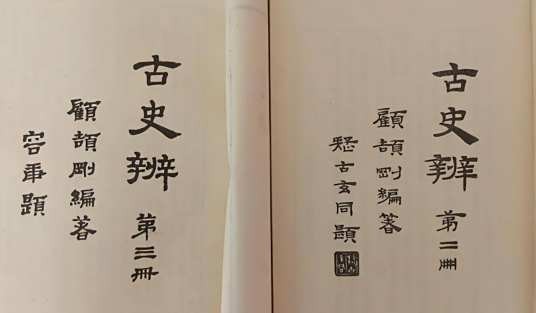 古史辨 第二冊
顧頡剛編著
疑古玄同題
古史辨 第三冊
顧頡剛編著
容庚題